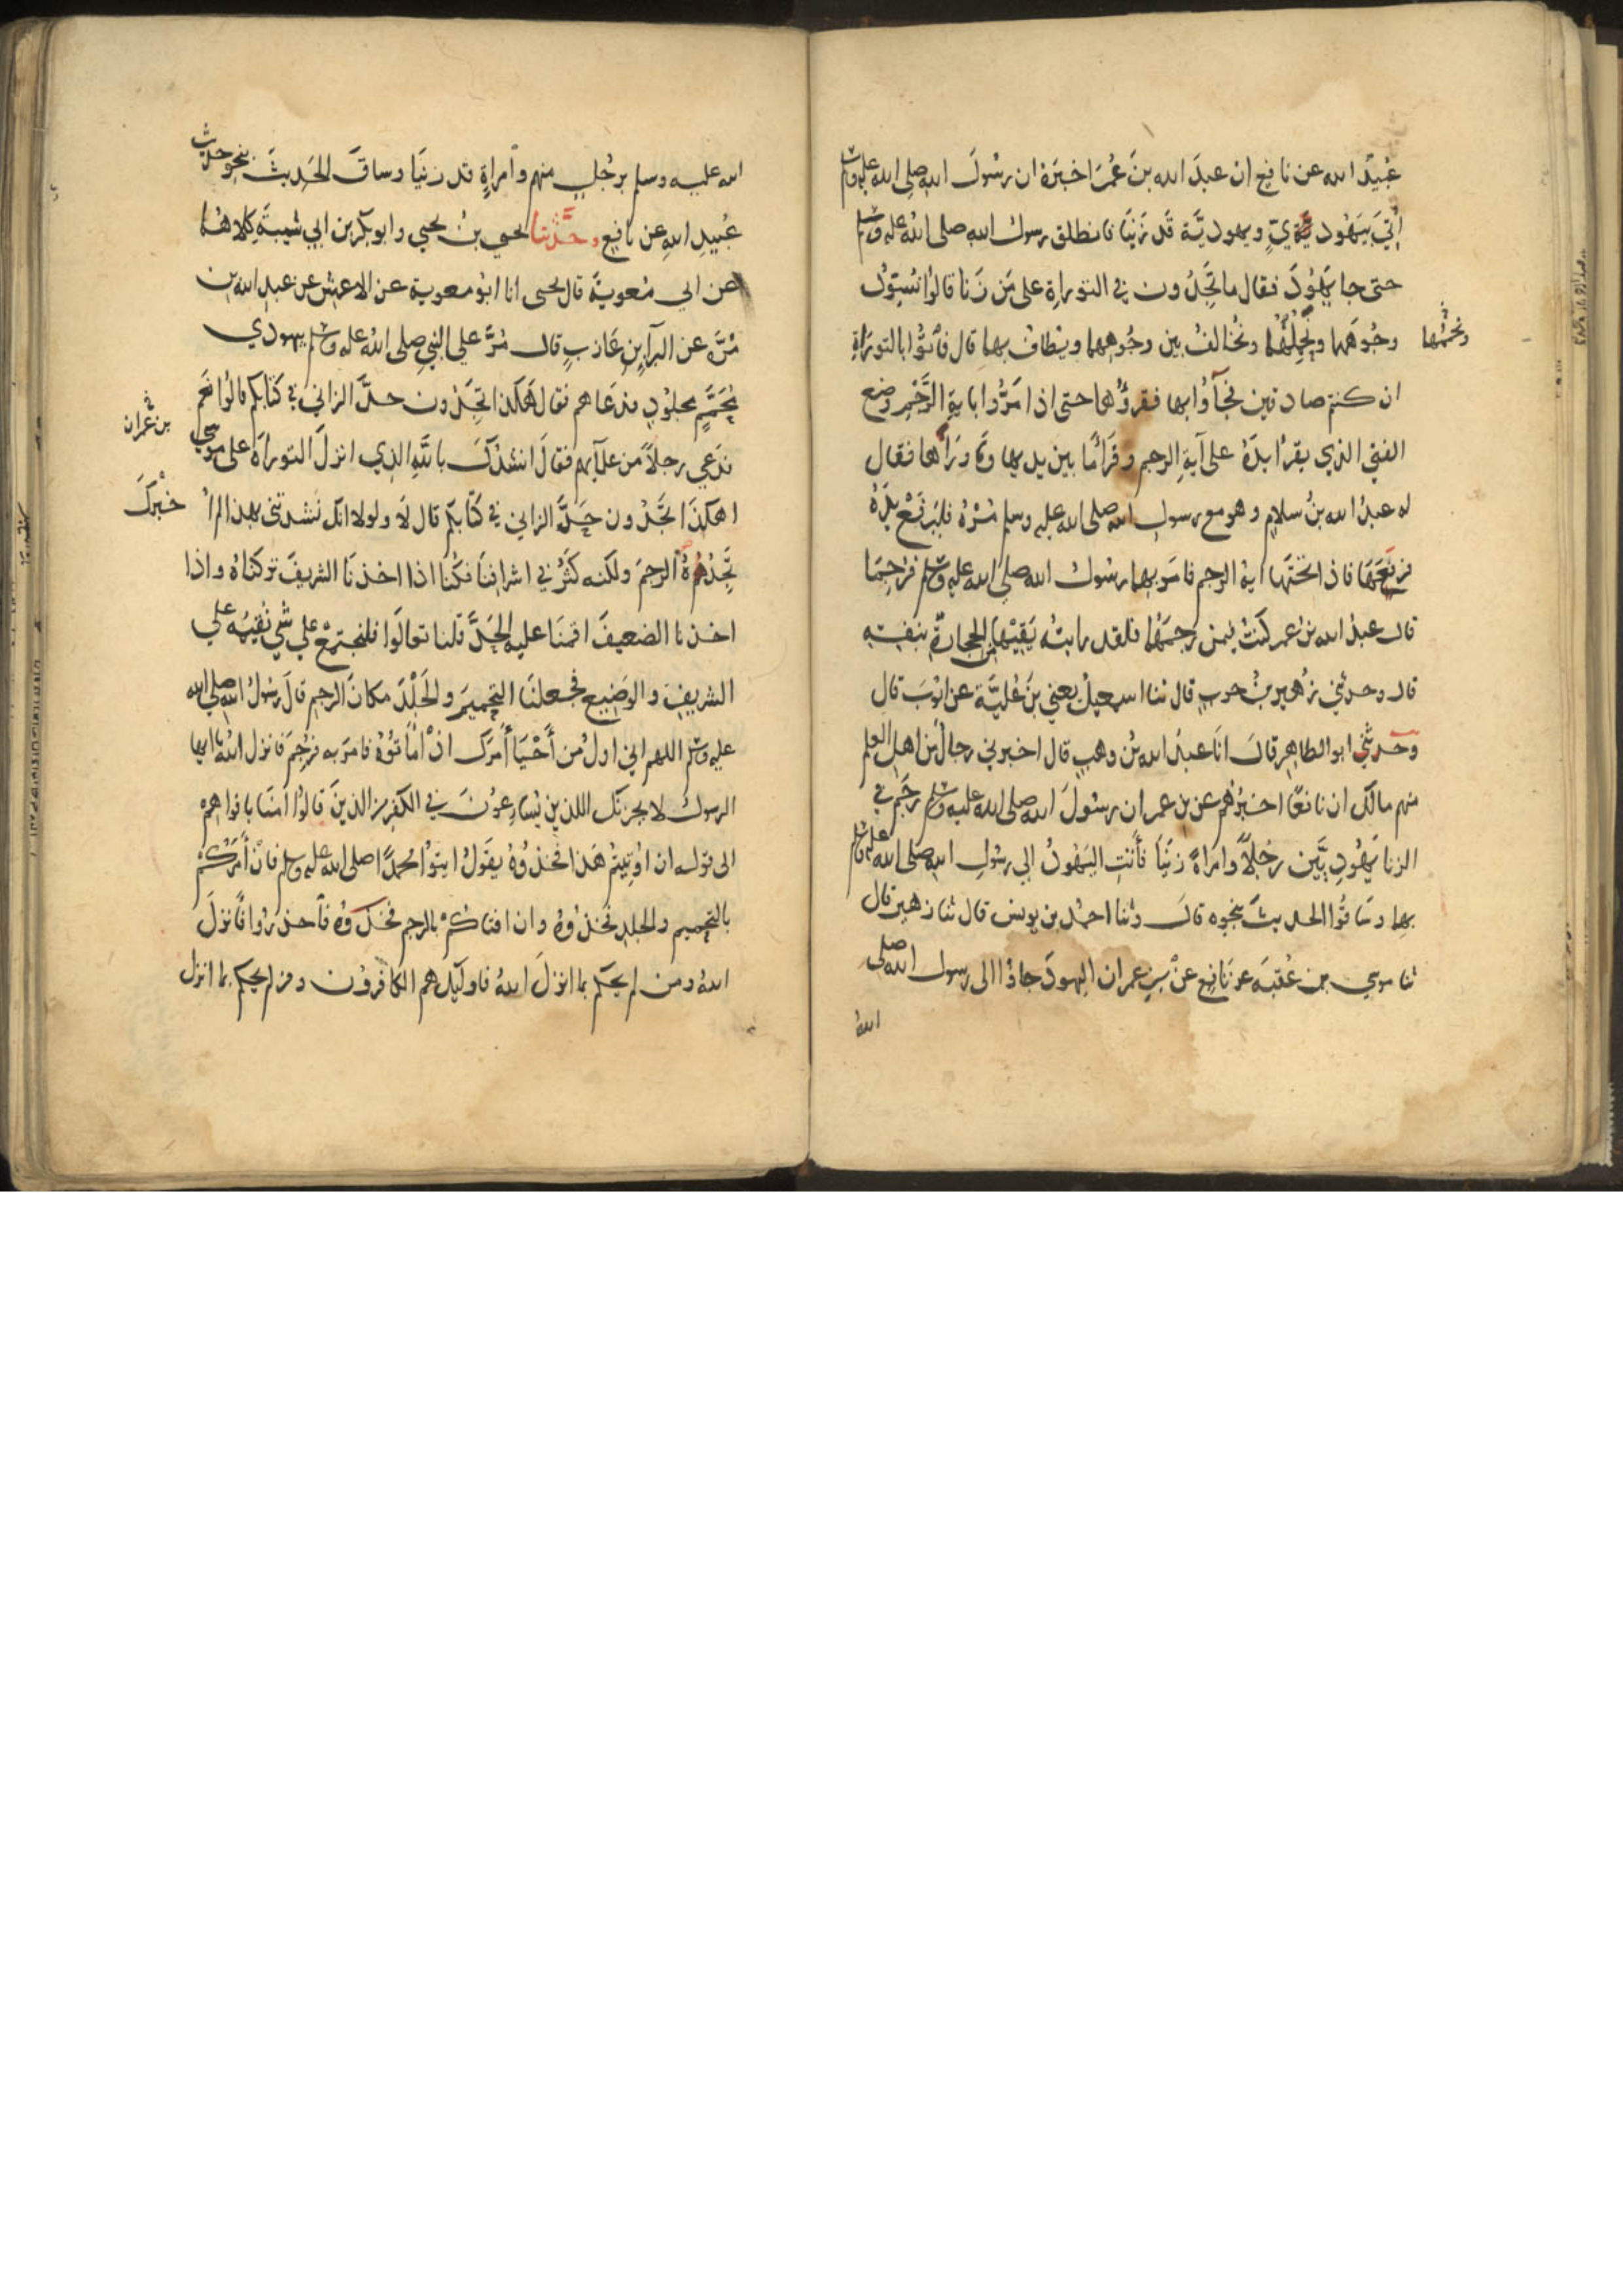 عُبَيْدُ الله عن نافع ان عبدَ الله بنَ عُمَرَ اخبَرَهُ ان رسُولَ الله صلى الله عليه وسلم
أُتِيَ بيَهُوديٍّ ويهوديَّة قَد زَنَيَا فانطلق رسولُ الله صلى اللهُ عليه وسلم
حتى جا يَهُودَ فقال ما تَجِدُون في التوراةِ على مَن زَنا قالوُا نُسَوِّدُ
وجُوهَهما ونُحَمِّلُهُما ونُخالفُ بين وجُوههما ويُطافُ بهما قال فأتُوُا بالتورَاةِ
ونُحَمِّمُهما
ان كنتم صادقين فجآؤُا بها فقرؤُها حتى اذا مَرُّوا باية الرَّجْمِ وضع
الفتى الذي يقرأُ يدَهُ على آيةِ الرجمِ وقَرَأَ مَا بين يديها ومَا وَرَآهَا فقال
له عبدُ الله بنُ سلامٍ وهو مع رسولِ الله صلى الله عليه وسلم مُرْهُ فليَرفَعْ يدَهُ
فرَفَعَهَا فاذا تحتَها ايةُ الرجمِ فامَرَ بهما رسُولُ الله صلى الله عليه وسلم فرُجِمَا
قال عبدُ الله بنُ عمر كنتُ فيمن رجمَهُما فلقد رايتُه يَقِيْها من الحجارَةِ بنفسِهِ
قال وحدثني زُهيرُ بنُ حربٍ قال ثنا اسمعيلُ يعني بنَ عُليَّةَ عن ايوبَ قال
وحدثني ابو الطاهِرِ قالَ انَا عبدُ الله بنُ وهبٍ قال اخبرني رجالٌ من اهلِ العلم
منهم مالك ان نافعًا اخبَرُهُم عن بن عمر ان رسُولَ الله صلى الله عليه وسلم رجَمَ في
الزنا يَهُودِيَّين رجُلاً وامراةً زَنَيَا فأتتِ اليَهُودُ الي رسُولِ الله صلى الله عليه وسلم
بهِما وسَاقُوا الحديثَ بنحوه قالَ وثنا احمدُ بن يونسَ قال ثنا زهير قال
ثنا موسي بن عُقبَه عن نافِعٍ عن بنِ عمر ان اليهودَ جاؤا الى رسول الله صلى
اللهُ
الله عليه وسلم برجُلٍ منهم وامراةٍ قد زنيَا وساقَ الحَديثَ بنحو حديث
عُبيدِ اللهِ عن نافِع وحدَّثنا يحيى بنُ يحيي وابو بكر بن ابي شيبَةَ كِلاهُما
عن ابي مُعويَةَ قال يحيى انا ابُو معوية عن الاعمشِ عن عبد الله بن
مُرَّة عن البرآءِ بنِ عَازبٍ قال مُرَّ علي النبيِ صلى اللهُ عليه وسلم بيهودي
مُحَمَّمٍ مجلوُدٍ فدعَاهم فقال هَكذا تَجِدُون حدَّ الزاني في كتابكم قالوُا نعَم
فدعي رجلاً من علمآيهم فقالَ انشدُكَ باللهِ الذي انزلَ التوراةَ على موسي
بن عمران
اهكذَا تَجدُون حَدَّ الزاني في كتابكم قال لاَ ولولا انك نشدتني بهذا لم أُ
خْبِرْكَ
نَجِدُهُ الرجمَ ولكنه كَثُرَ في اشرافِنَا فكُنا اذا اخذنَا الشريفَ تركناهُ واذا
اخذنا الضعيفَ اقمنَا عليه الحَدَّ قلنا تعالَوا فلنجتمِعْ علي شيٍ نُقِيمُه علي
الشريفِ والوَضيعِ فجعلنَا التحميمَ والجَلْدَ مكانَ الرجمِ قالَ رسُولُ الله صلى الله
عليه وسلم اللهم اني اولُ من أَحْيَا أمرَك اذْ امَاتوُهُ فامرَ به فرُجِمَ فانزل اللهُ يا ايها
الرسولُ لا يحزنك الذين يُسَارعوُنَ في الكفرِ من الذينَ قالوُا امنَا بافواههم
الى قوله ان اوُتِيتُمْ هَذا فخذوُهُ يقوُلُ ايتوُا محمدًا صلى الله عليه وسلم فانْ أمَركُمْ
بالتحميم والجلدِ فخذوُهُ وان افتاكُمْ بالرجم فَخذوُه فاحذروُا فأنزلَ
اللهُ ومن لم يحكم بما انزلَ اللهُ فاوليك هم الكافروُن ومن لم يحكم بما انزل